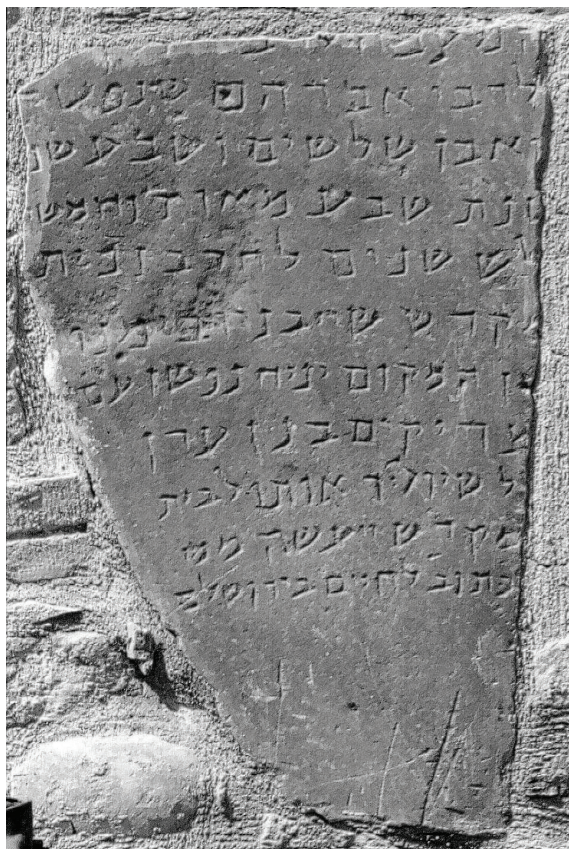 אברהם שנפט
ואבן שלשים ושבע שנ
נת שבע מאות וחמש
לש שנים לחרבן בית
מקדש שייבנה בימנו
ן המקום יניח נפשו עם
צדיקים בגן עדן
ל שיוליך אותו לבית
מקדש מש
כתוב לחיים בירושלם